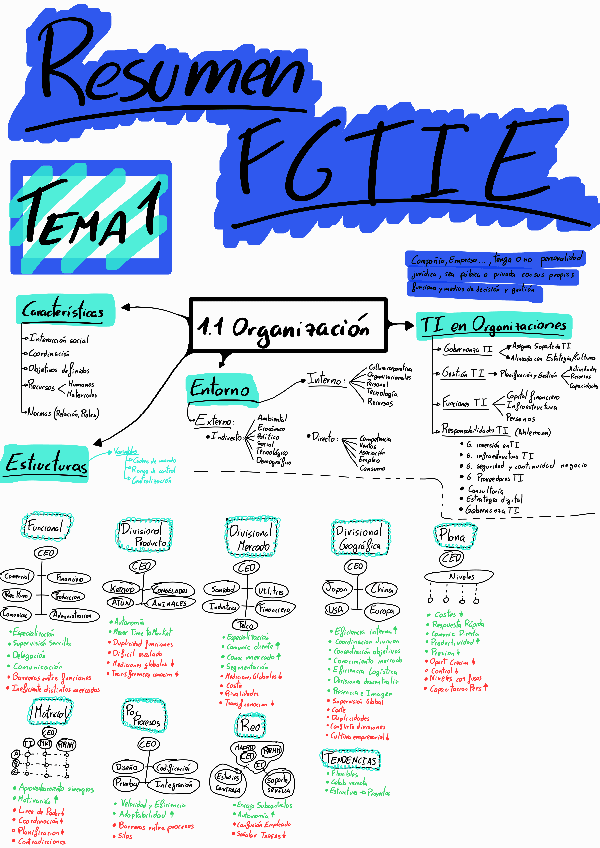 Resumen
FGTIE
TEMA 1
Compañía, Empresa..., tenga o no personalidad
jurídica, sea pública o privada con sus propias
funciones y medios de decisión y gestión
1.1 Organización
Características
Interacción social
Coordinación
Objetivos definidos
Recursos
Humanos
Materiales
Normas (Relación, Roles)
Entorno
Interno:
Cultura corporativa
Organizacionales
Personal
Tecnología
Recursos
Externo:
Indirecto
Ambiental
Económico
Político
Social
Tecnológico
Demográfico
Directo:
Competencia
Ventas
Empleo
Consumo
TI en Organizaciones
Gobernanza TI
Asegura Soporte TI
Alineada con Estrategias/Cultura
Gestión TI
Planificación y Gestión
Actividades
Procesos
Capacidades
Funciones TI
Capital financiero
Infraestructura
Personas
Responsabilidades TI
G. inversión en TI
G. infraestructura TI
G. seguridad y continuidad negocio
G. Proveedores TI
Consultoría
Estrategia digital
Gobernanza TI
Estructuras
Variables
Cadena de mando
Rango de control
Centralización
Funcional
CEO
Comercial
Financiero
Producción
Administración
Especialización
Supervisión Sencilla
Delegación
Comunicación
Barreras entre funciones
Ineficiente distintos mercados
Divisional
Producto
CEO
CONGELADOS
ATÚN
ANIMALES
Autonomía
Menor Time To Market
Duplicidad funciones
Difícil escalado
Mediciones globales ↓
Transferencia conocim ↓
Divisional
Mercado
CEO
Sanidad
Utilities
Industria
Financiero
Telco
Especialización
Comunic cliente ↑
Conoc mercado ↑
Segmentación
Mediciones Globales ↓
Coste
Rivalidades
Transf conocim ↓
Divisional
Geográfica
CEO
Japon
China
USA
Europa
Eficiencia interna ↑
Coordinación division
Concentración objetivos
Conocimiento mercado
Eficiencia Logística
Presencia e Imagen
Supervisión Global
Coste
Duplicidades
Conflicto divisiones
Cultura empresarial ↓
Plana
CEO
Niveles
Costes ↓
Respuesta Rápida
Comunic Directa
Productividad ↑
Presion ↑
Oport Crecim ↓
Control ↓
Niveles confusos
Capacitacion Pers ↑
Matricial
CEO
TI
MKT
RRHH
Aprovechamiento sinergias
Motivación ↑
Lucha de Poder ↓
Coordinación ↓
Planificacion ↓
Contradicciones
Por
Procesos
CEO
Diseño
Codificación
Pruebas
Integración
Velocidad y Eficiencia
Adaptabilidad ↑
Barreras entre procesos
Silos
Red
MADRID
CEO
RRHH
Soporte
SEVILLA
Encaja Subcontratas
Autonomía ↑
Confusión Empleado
Señalar Tareas ↓
TENDENCIAS
Flexibles
Colab remota
Estructura → Proyectos